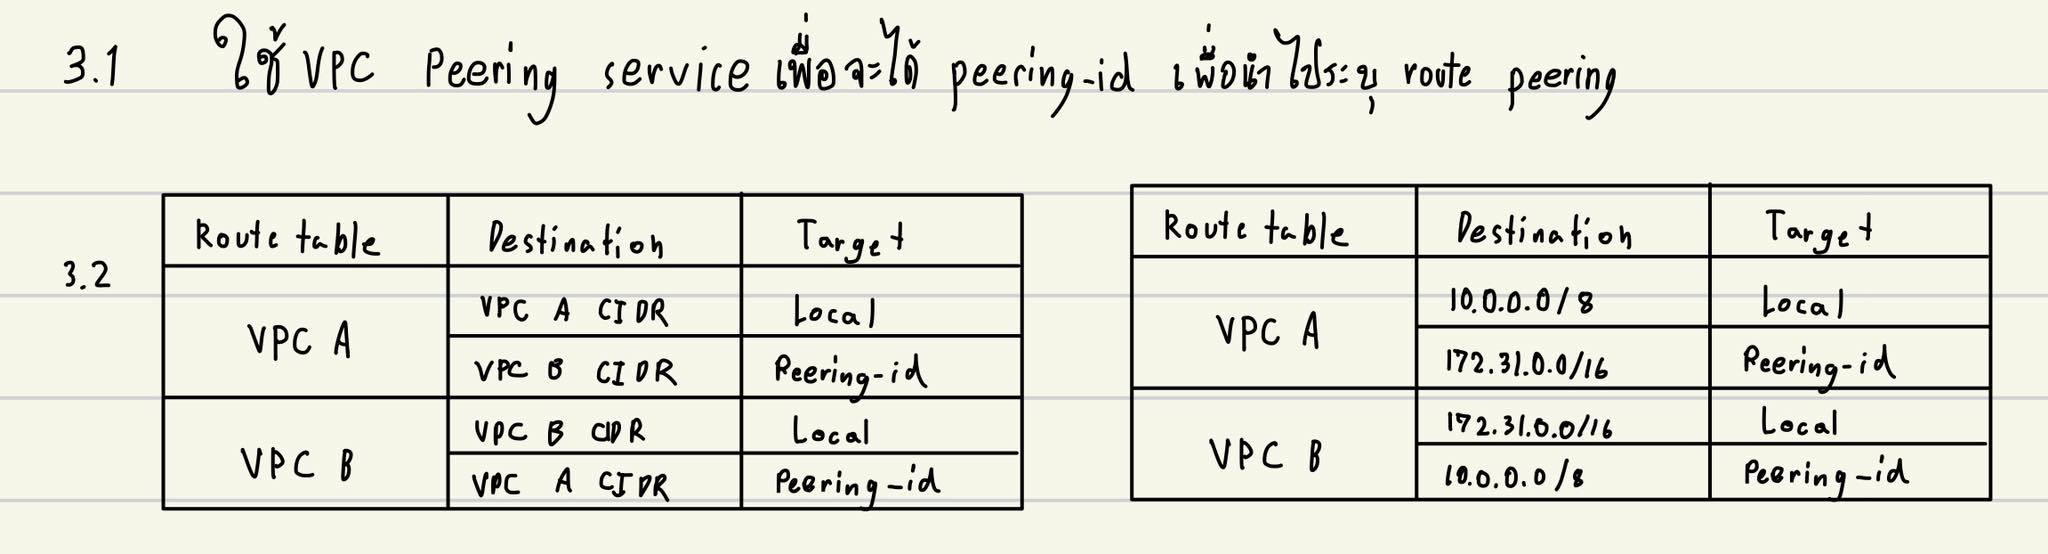 3.1 ใช้ VPC Peering service เพื่อจะได้ peering-id เพื่อนำไประบุ route peering
3.2
Route table Destination Target
VPC A
VPC A CIDR Local
VPC B CIDR Peering-id
VPC B
VPC B CIDR Local
VPC A CIDR Peering-id
Route table Destination Target
VPC A
10.0.0.0/8 Local
172.31.0.0/16 Peering-id
VPC B
172.31.0.0/16 Local
10.0.0.0/8 Peering-id